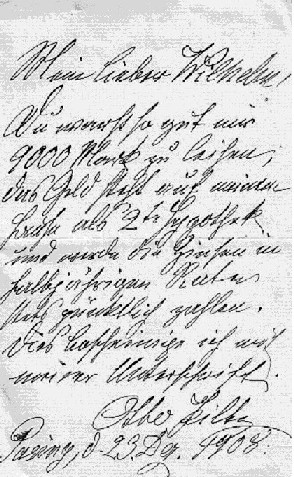 Mein lieber Wilhelm!
Du warst so gut mir
9000 Mark zu leihen,
das Geld steht auf meinem
Hause als 2te Hypothek
und werde die Zinsen in
halbjährigen Raten
stets pünktlich zahlen.
Dies bescheinige ich mit
meiner Unterschrift.
Otto
Pasing, d. 23 Dez. 1903.